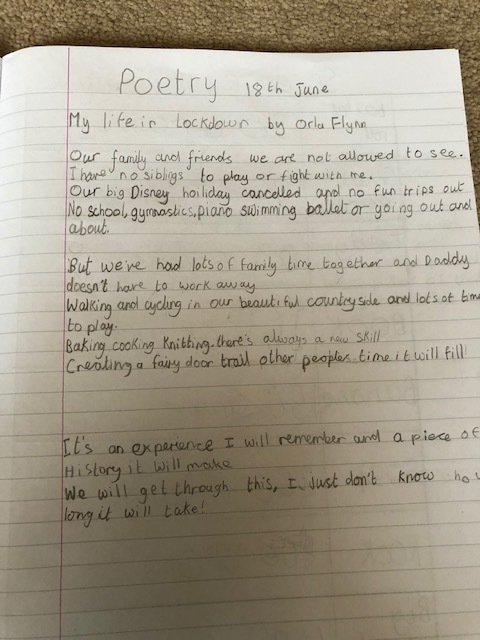 Poetry 18th June
My life in Lockdown by Orla Flynn
Our family and friends we are not allowed to see.
I have no siblings to play or fight with me.
Our big Disney hoiliday cancelled and no fun trips out
No school, gymnastics, piano swimming ballet or going out and
about.
But we've had lots of family time together and Daddy
doesn't have to work away
Walking and cycling in our beautiful countryside and lots of time
to play.
Baking cooking knitting. there's always a new skill
Creating a fairy door trail other peoples time it will fill
It's an experience I will remember and a piece of
History it will make
We will get through this, I just don't know how
long it will take!